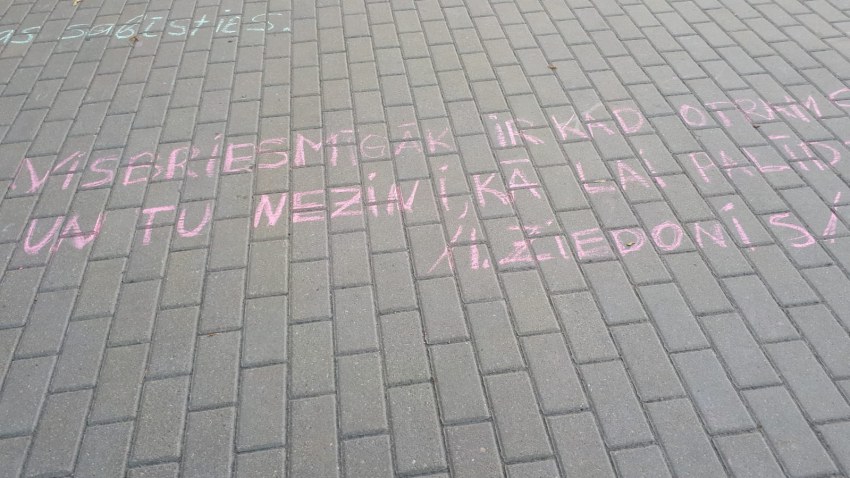 sabisties.
VISBRIESMĪGĀK IR KAD OTRAM S
UN TU NEZINI, KĀ LAI PALĪDZ
/I. ZIEDONIS/